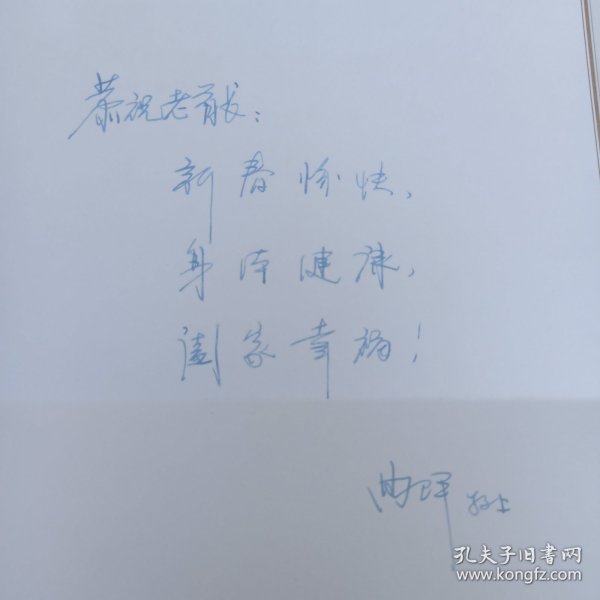 恭祝老
新春愉快,
身体健康,
阖家幸福!
敬上
孔夫子旧书网
www.kongfz.com